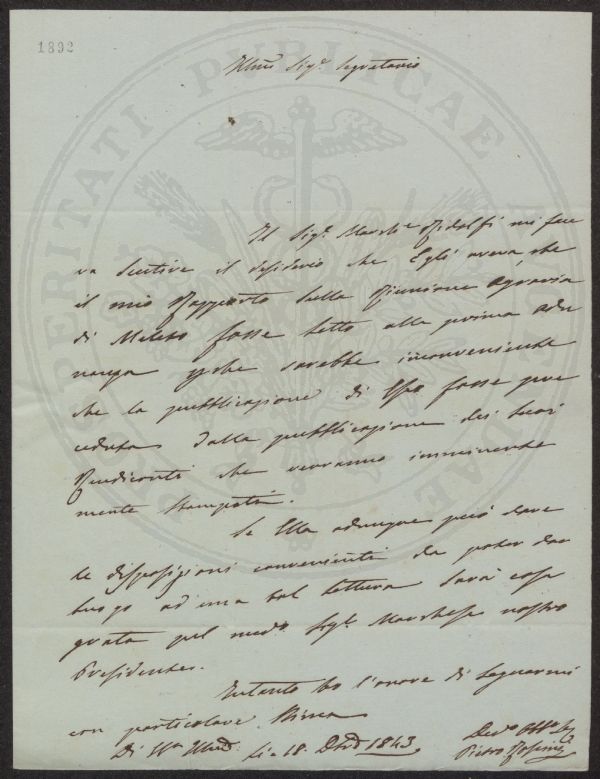 1892
PROSPERITATI PUBLICAE AUGENDAE
Illmo Sigr Segretario
Il Sigr March.e Ridolfi mi fece
va sentire il desiderio che Egli aveva che
il mio Rapporto sulla Riunione Agraria
di Meleto fosse letto alla prima adu
nanza che sarebbe inconveniente
che la pubblicazione di esso fosse pre
ceduta dalla pubblicazione dei suoi
Rendiconti che verranno imminente
mente stampati.
Se Ella adunque può dare
le disposizioni convenienti da poter dar
luogo ad una tal lettura sarà cosa
grata pel medo Sigr Marchese nostro
Presidente.
Intanto ho l'onore di segnarmi
con particolare stima
Di VS Illma li 18 1843
Devo Obbo
Pietro